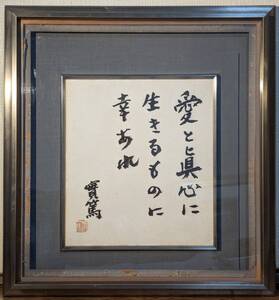 愛と眞心に
生きるものに
幸あれ
實篤